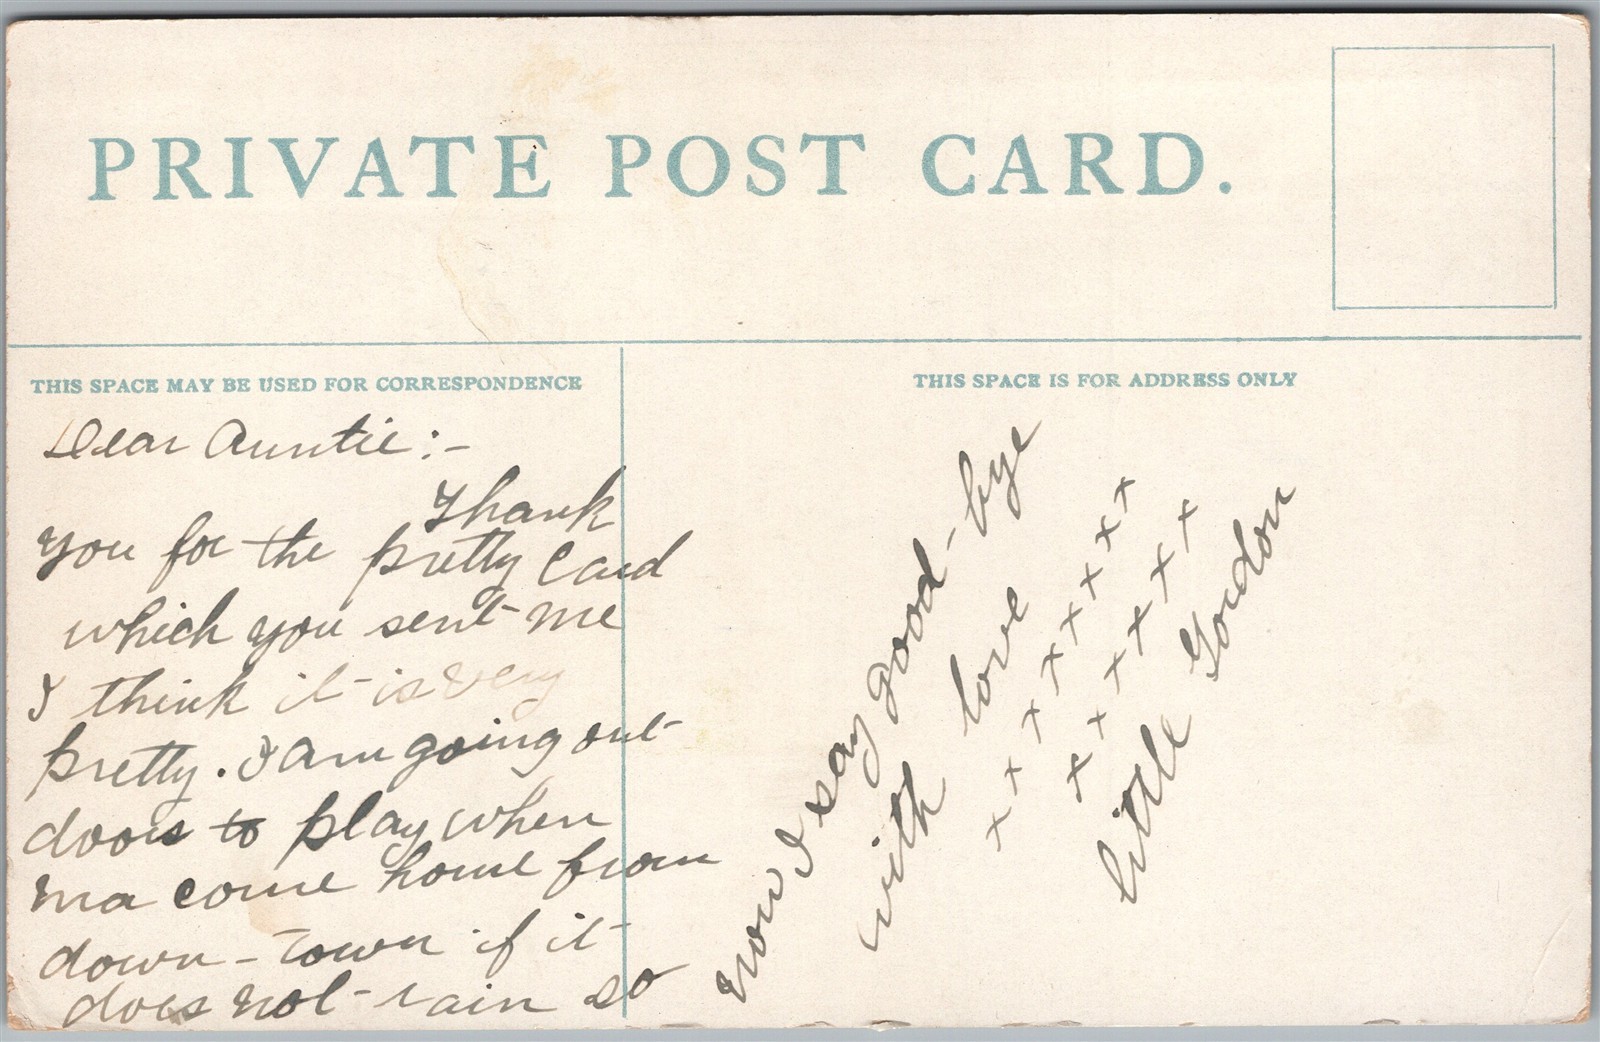 PRIVATE POST CARD.
THIS SPACE MAY BE USED FOR CORRESPONDENCE
THIS SPACE IS FOR ADDRESS ONLY
Dear Auntie:-
Thank
you for the pretty card
which you sent me
I think it is very
pretty. I am going out
doors to play when
ma come home from
down-town if it
does not rain so
now I say good-bye
with love
x x x x x x x x x
x x x x x x x
little Gordon